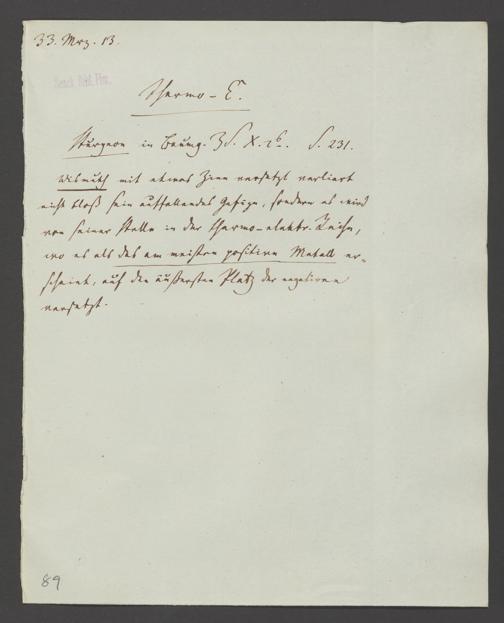 33. Mrz. 13.
Thermo-E.
Sturgeon in Baumg. ZS. X. 2. S. 231.
Wismuth mit etwas Zinn versetzt verliert
nicht bloß sein auffallendes Gefüge, sondern es wird
von seiner Stelle in der thermo-elektr. Reihe,
wo es als das am meisten positive Metall er-
scheint, auf den äußersten Platz der negativen
versetzt.
89